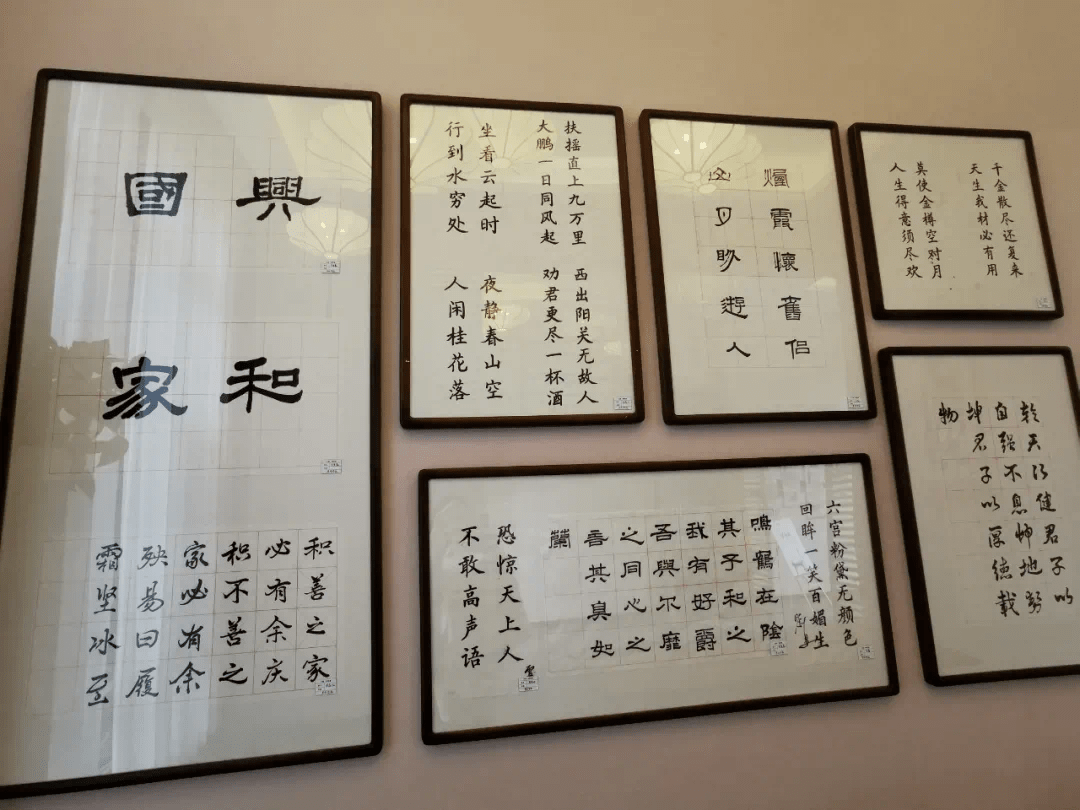 國興
家和
积善之家
必有余庆
积不善之
家必有余
殃易曰履
霜坚冰至
行到水穷处
坐看云起时
大鹏一日同风起
扶摇直上九万里
人闲桂花落
夜静春山空
劝君更尽一杯酒
西出阳关无故人
煙霞懷舊侣
山月助遊人
人生得意须尽欢
莫使金樽空对月
天生我材必有用
千金散尽还复来
不敢高声语
恐惊天上人
鳴鶴在陰
其子和之
我有好爵
吾與尔靡
之同心之
善其臭如
蘭
回眸一笑百媚生
六宫粉黛无颜色
乾天行健君子以
自强不息坤地势
坤君子以厚德载
物